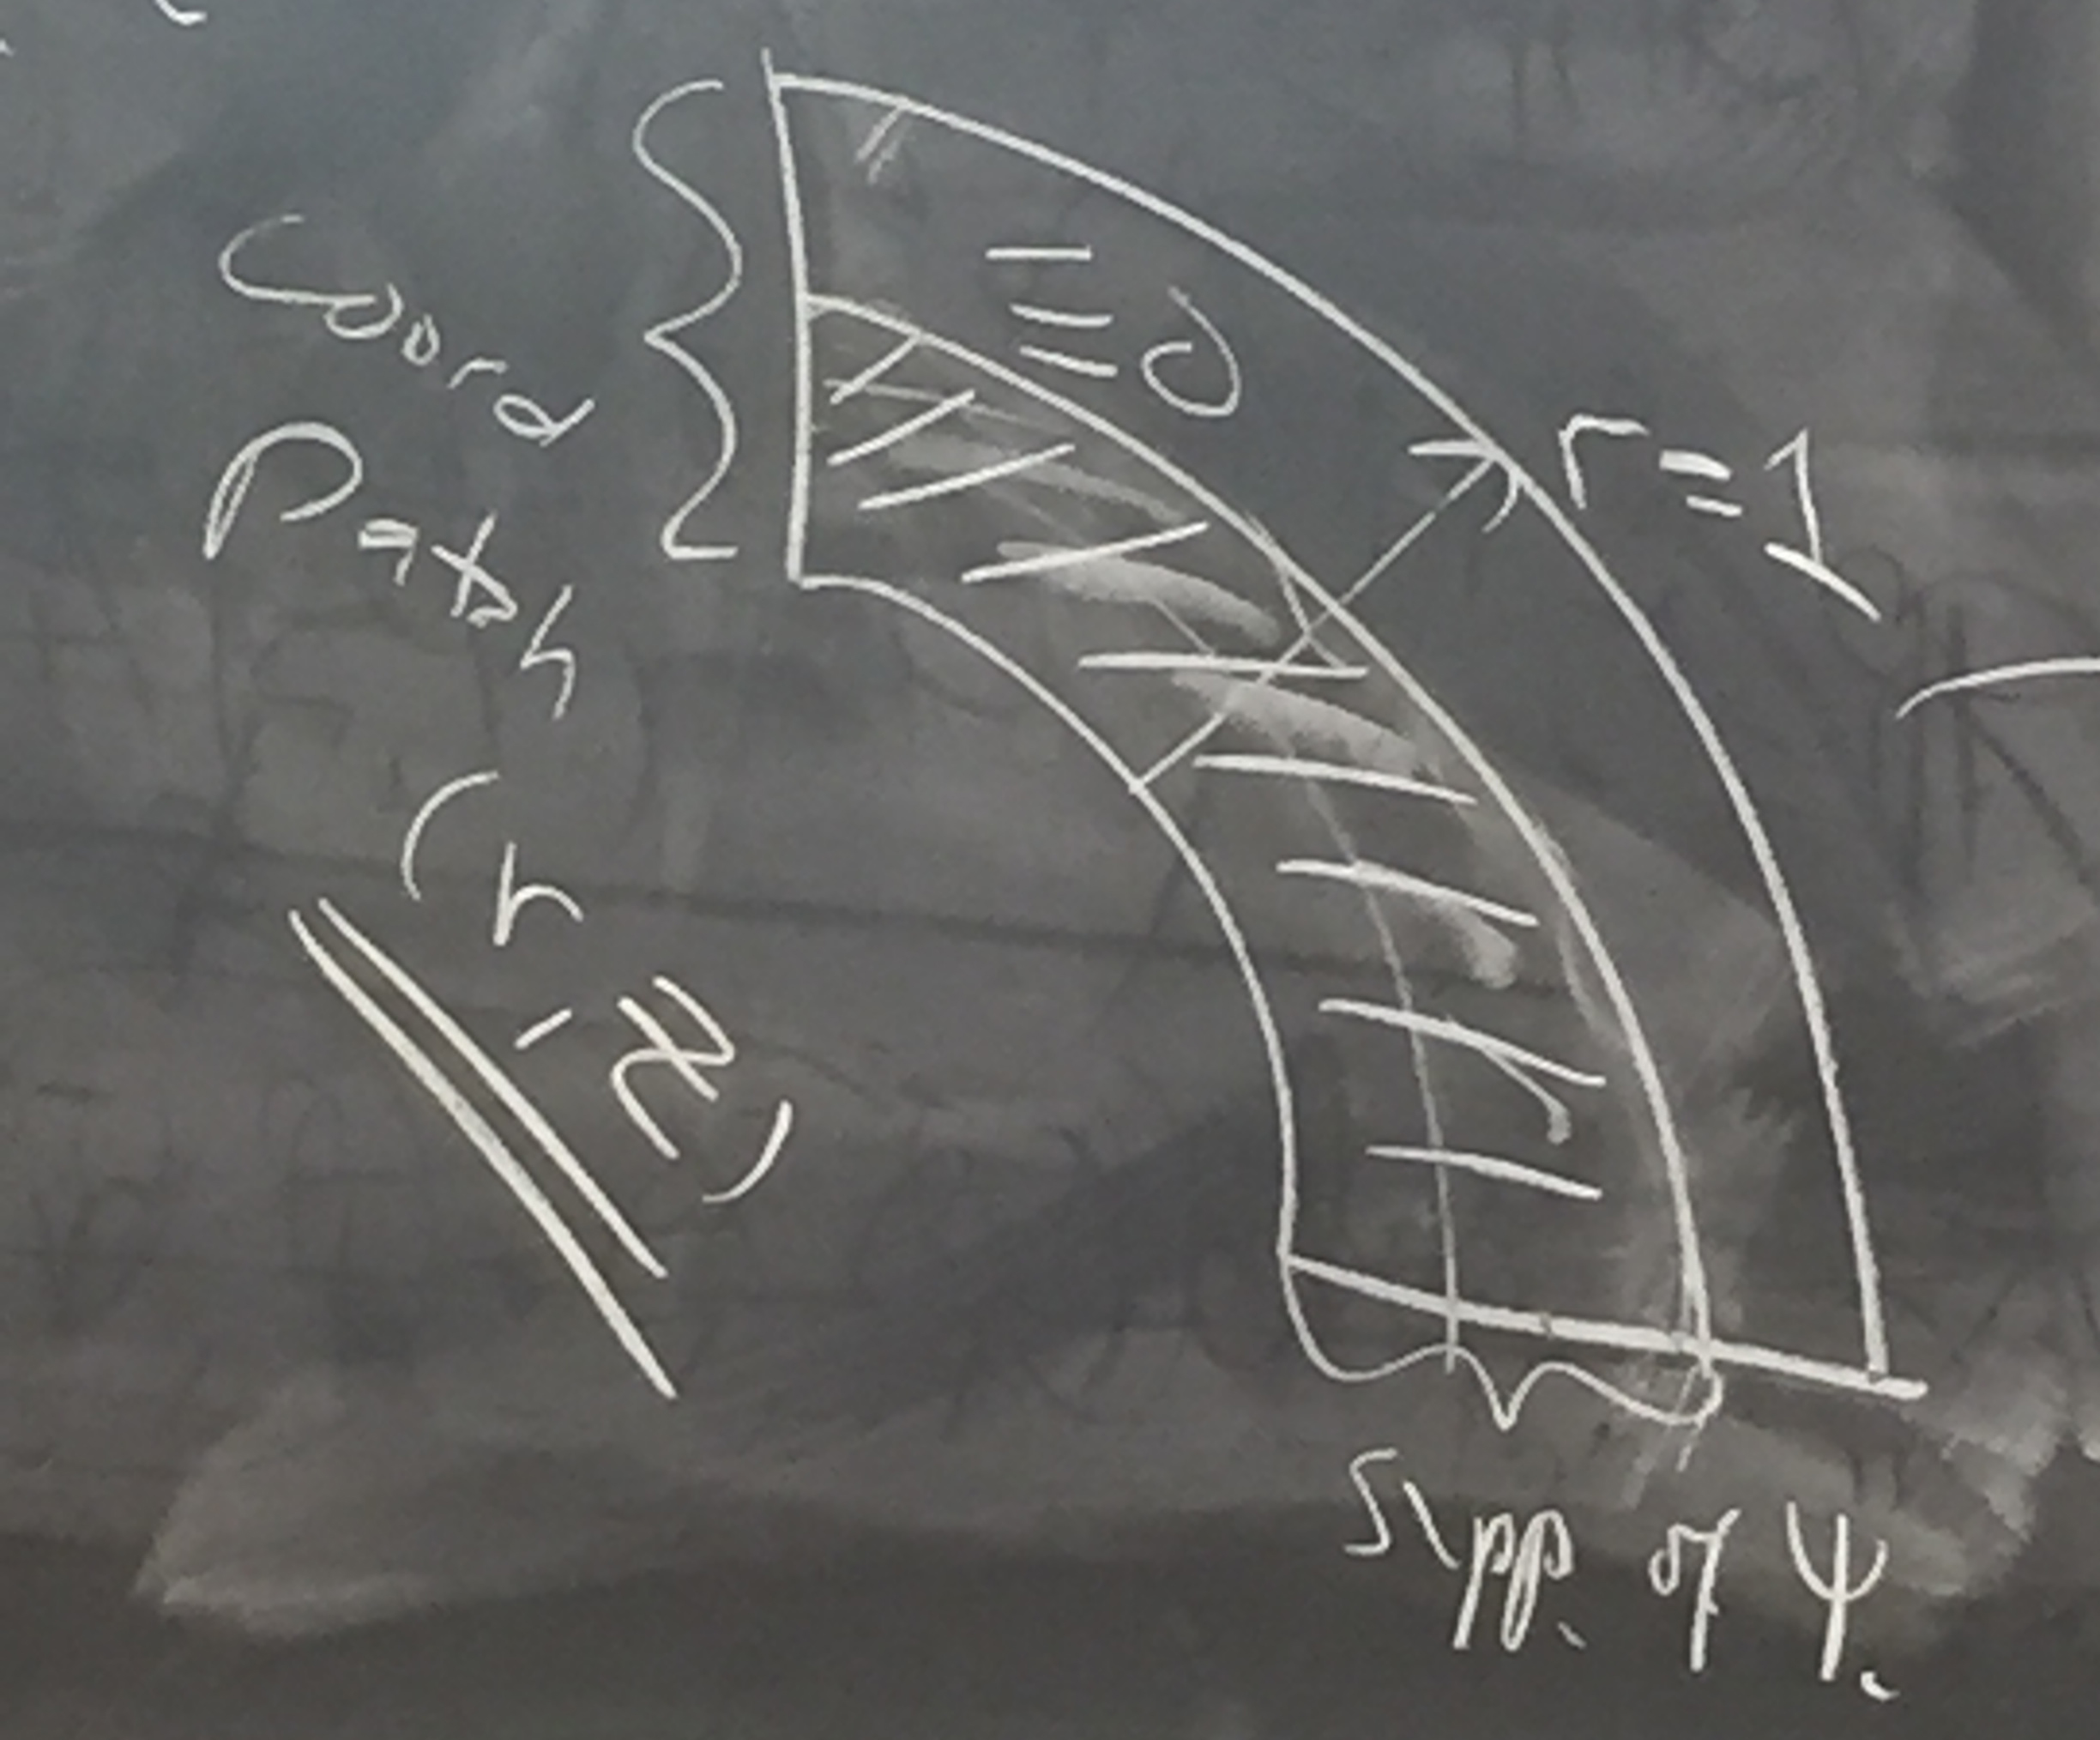 Coord
Patch
≡0
r=1
Supp. of ψ.